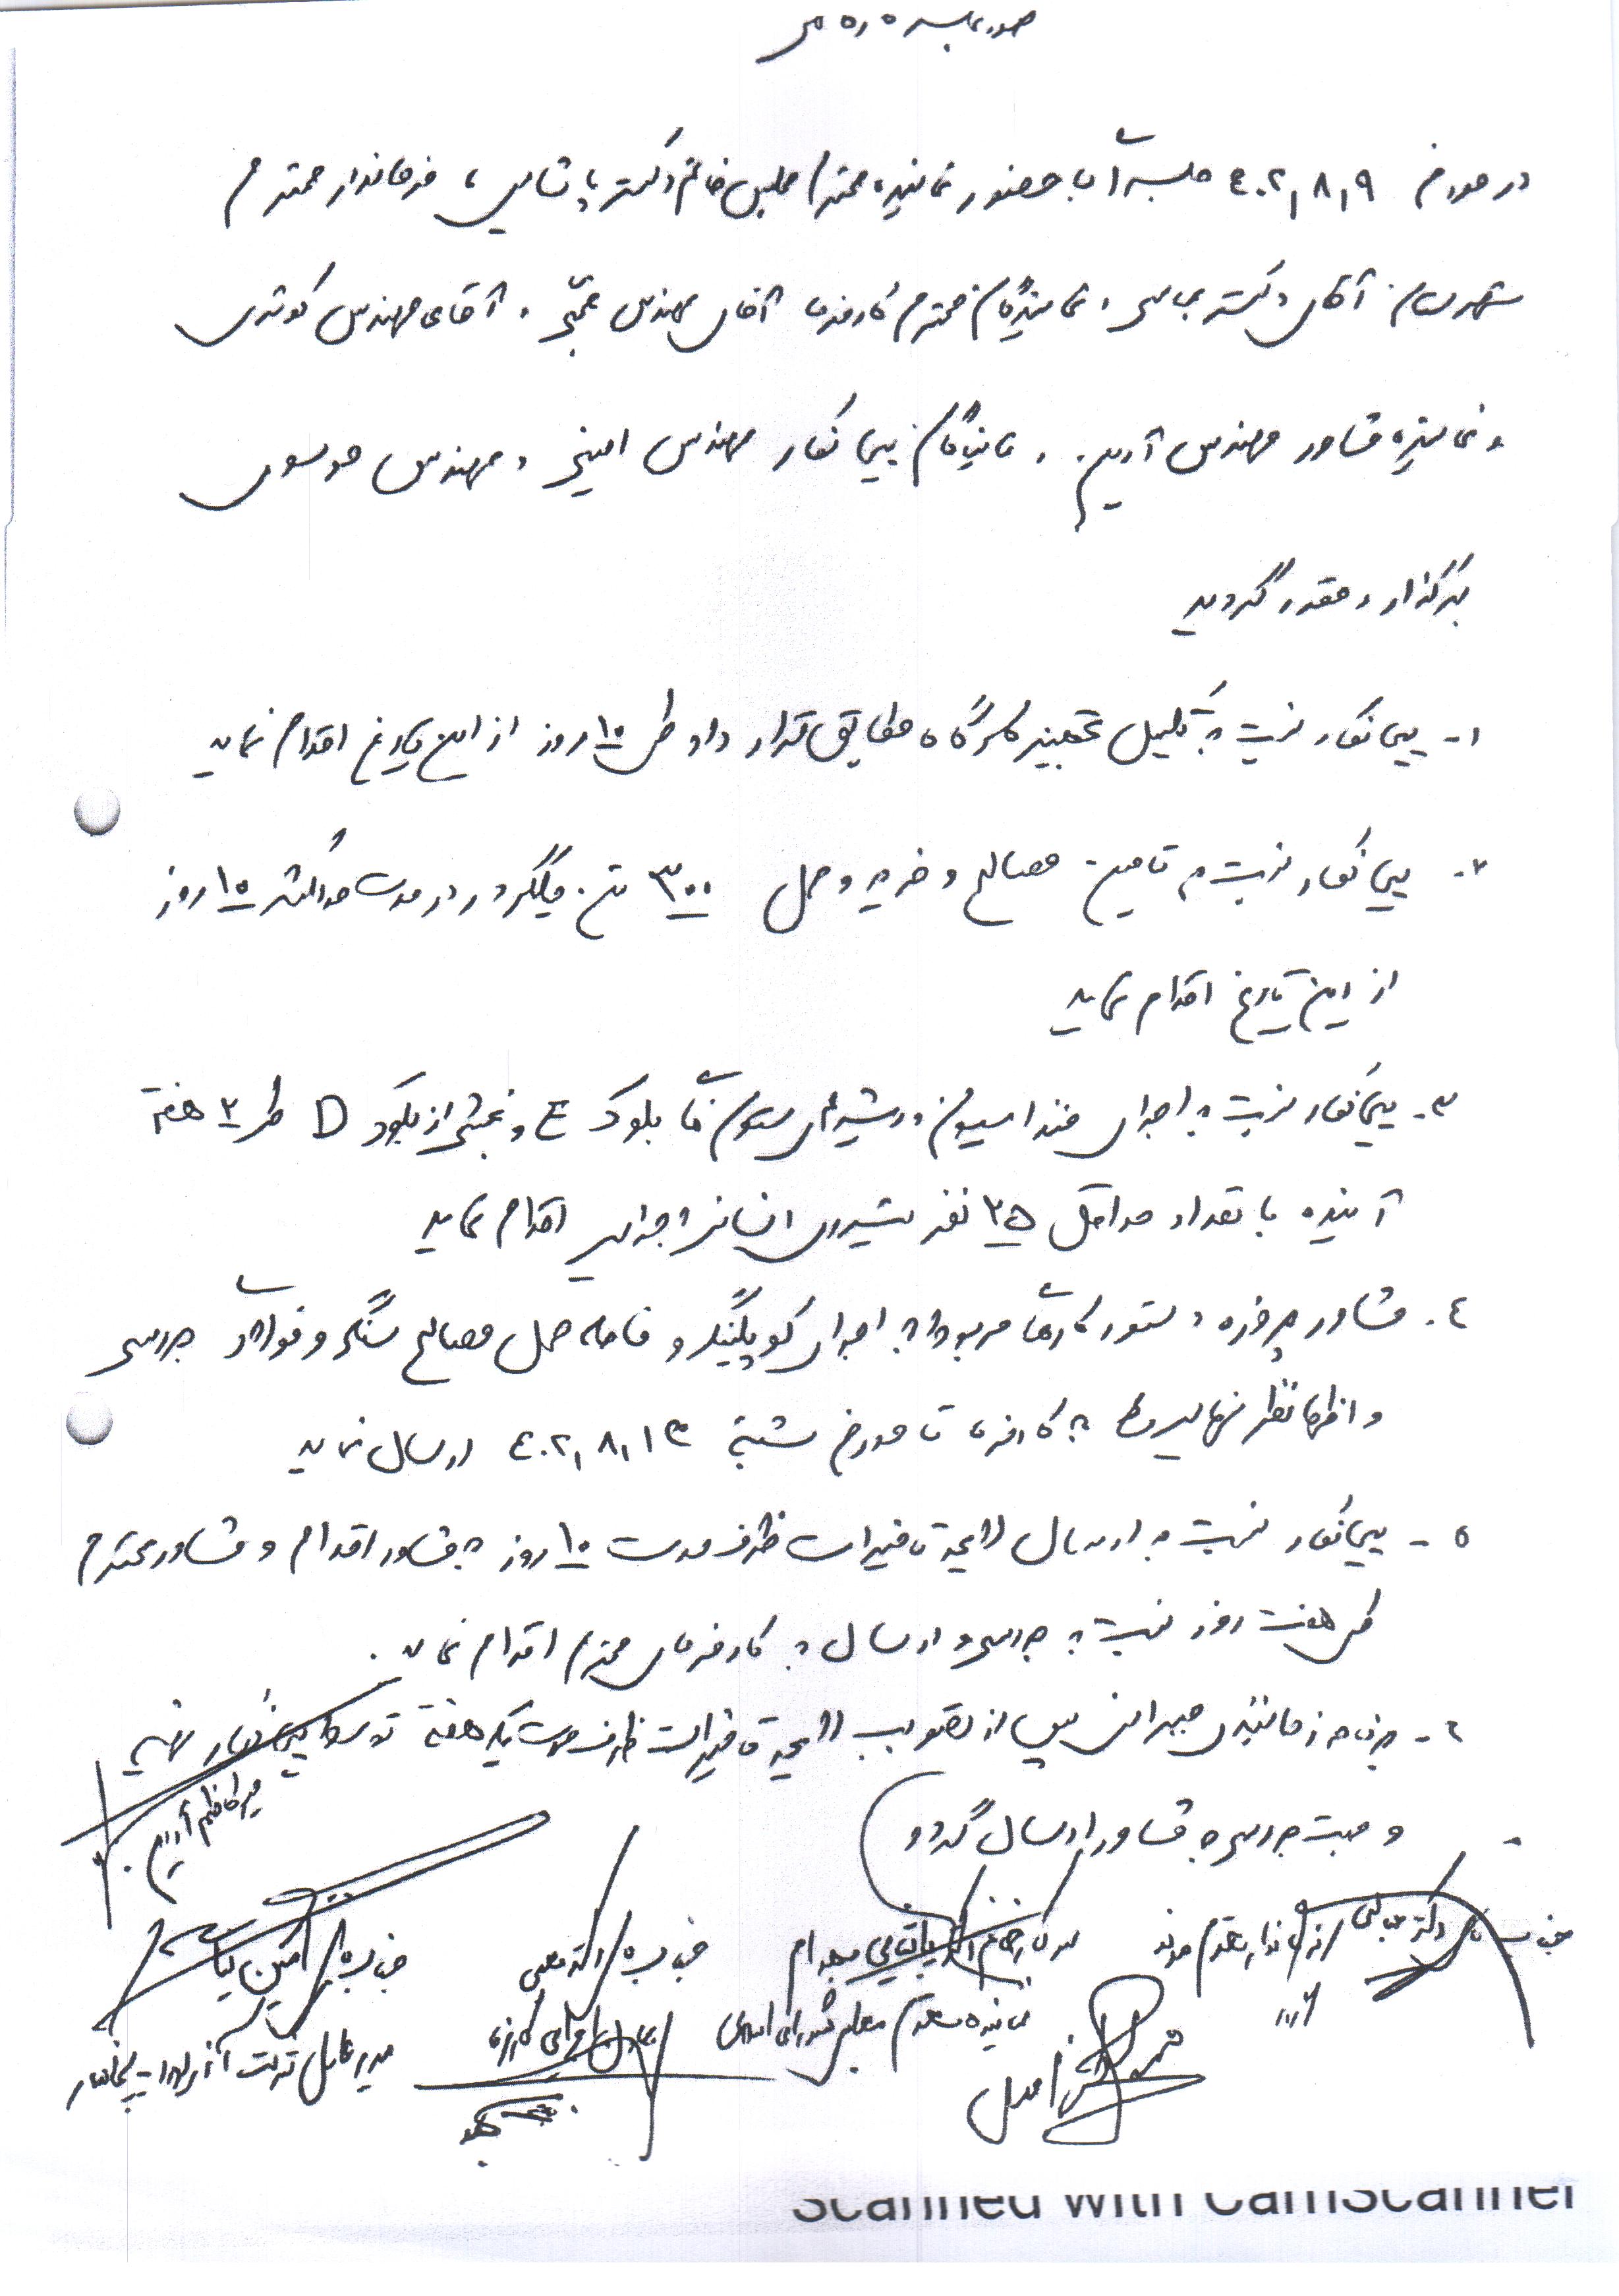 صورتجلسه
در مورخ ۴۰۲,۸,۹ جلسه‌ای با حضور نماینده محترم مجلس خانم دکتر پاشایی ، فرماندار محترم
شهرستان آقای دکتر عباسی و نمایندگان محترم کارفرما آقای مهندس و آقای مهندس کوثری
و نماینده مشاور مهندس آدیم و نمایندگان پیمانکار مهندس امینی و مهندس موسوی
برگزار و مقرر گردید
۱- پیمانکار نسبت به تکمیل تجهیز کارگاه مطابق قرارداد طی ۱۰ روز از این تاریخ اقدام نماید
۲- پیمانکار نسبت به تامین مصالح و خرید و حمل ۳۰۰ تن میلگرد در مدت حداکثر ۱۰ روز
از این تاریخ اقدام نماید
۳- پیمانکار نسبت به اجرای فنداسیون و ریشه‌های ستون‌های بلوک E و بخشی از بلوک D طی ۲ هفته
آینده با تعداد حداقل ۲۵ نفر نیروی انسانی اجرایی اقدام نماید
۴- مشاور پروژه دستور کارهای مربوط به اجرای کوپلینگ و فاصله حمل مصالح سنگی و فولادی بررسی
و اظهار نظر نهایی به کارفرما تا مورخ شنبه ۴۰۲,۸,۱۳ ارسال نماید
۵- پیمانکار نسبت به ارسال لایحه تاخیرات ظرف مدت ۱۰ روز به مشاور اقدام و مشاور محترم
طی هفت روز نسبت به بررسی و ارسال به کارفرمای محترم اقدام نماید.
۶- برنامه زمانبندی جبرانی پس از تصویب لایحه تاخیرات ظرف مدت یک هفته توسط پیمانکار تهیه
و جهت بررسی به مشاور ارسال گردد
میرکاظم آدیم
جناب آقای دکتر عباسی فرماندار محترم مرند
سرکار خانم دکتر پاشایی
نماینده محترم مجلس شورای اسلامی
جناب آقای دکتر
کارفرما
جناب آقای امین
مدیرعامل شرکت پیمانکار
Scanned with CamScanner